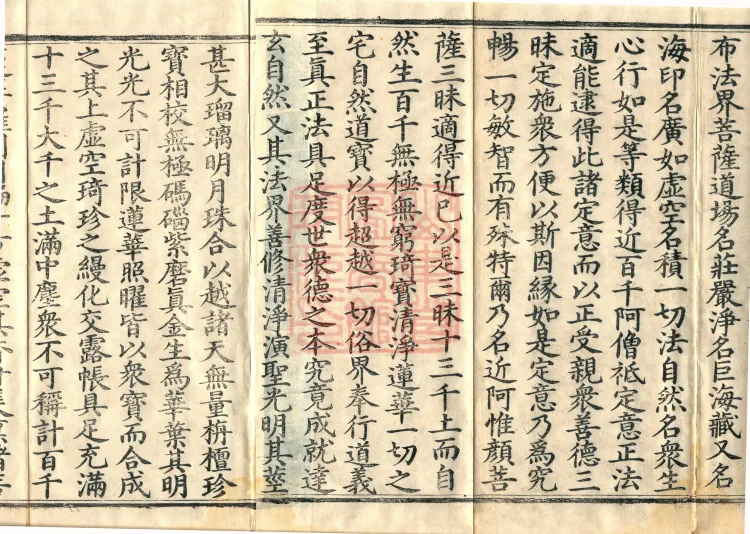 布法界菩薩道場名莊嚴淨名巨海藏又名
海印名廣如虛空名積一切法自然名衆生
心行如是等類得近百千阿僧祇定意正法
適能逮得此諸定意而以正受親衆善德三
昧定施衆方便以斯因縁如是定意乃爲究
暢一切敏智而有殊特爾乃名近阿惟顔菩
薩三昧適得近已以是三昧十三千土而自
然生百千無極無窮琦寶清淨蓮華一切之
宅自然道寶以得超越一切俗界奉行道義
至眞正法具足度世衆德之本究竟成就達
玄自然又其法界善修清淨演聖光明其莖
甚大瑠璃明月珠合以越諸天無量栴檀珍
寶相校無極碼碯紫磨眞金生爲華葉其明
光光不可計限蓮華照曜皆以衆寶而合成
之其上虛空琦珍之縵化交露帳具足充滿
十三千大千之土滿中塵衆不可稱計百千